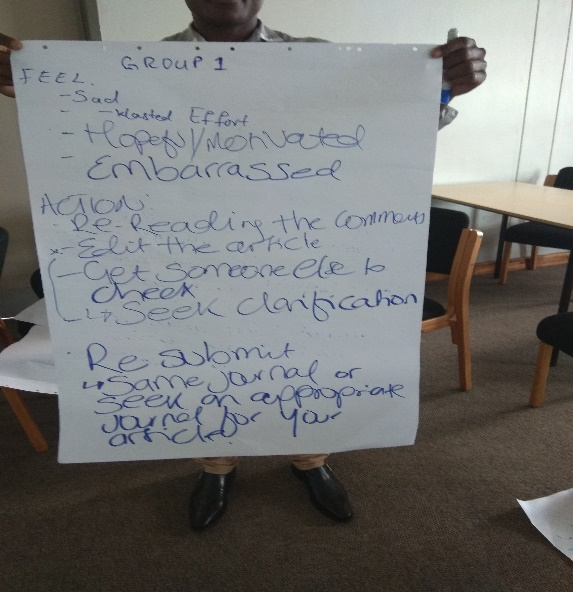 GROUP 1
FEEL.
- Sad
- Wasted Effort
- Hopeful/Motivated
- Embarrassed
ACTION:
- Re-Reading the comments
x- Edit the article
- Get someone else to
check
↳ Seek clarification
Re submit
↳ Same journal or
seek an appropriate
journal for your
article